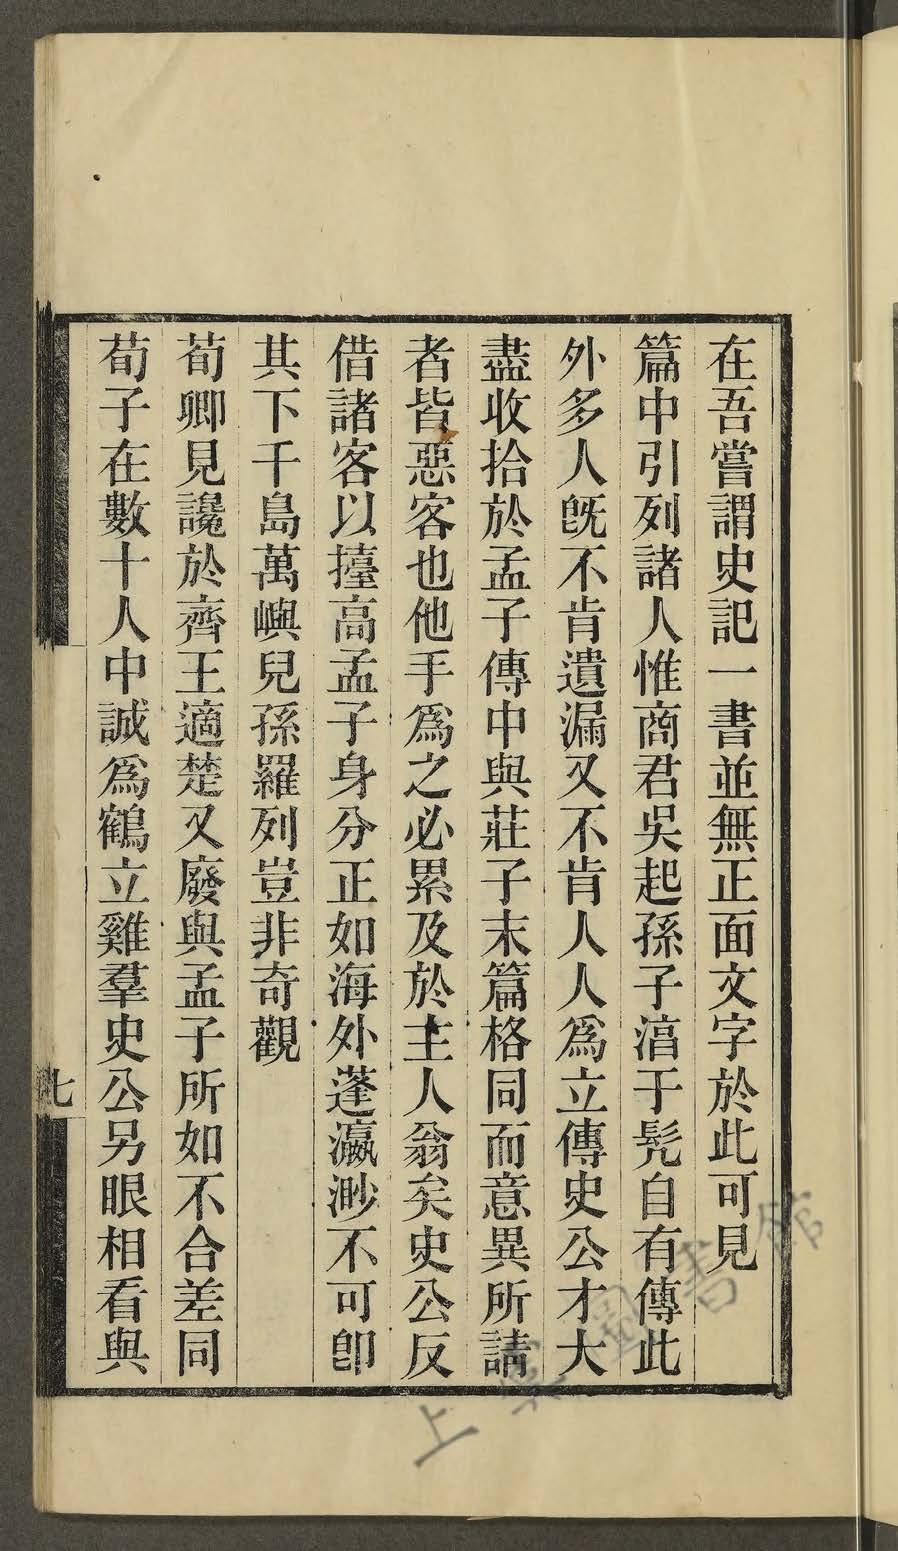 在吾嘗謂史記一書並無正面文字於此可見
篇中引列諸人惟商君吳起孫子淳于髡自有傳此
外多人旣不肯遺漏又不肯人人爲立傳史公才大
盡收拾於孟子傳中與莊子末篇格同而意異所請
者皆惡客也他手爲之必累及於主人翁矣史公反
借諸客以擡高孟子身分正如海外蓬瀛渺不可卽
其下千島萬嶼兒孫羅列豈非奇觀
荀卿見讒於齊王適楚又廢與孟子所如不合差同
荀子在數十人中誠爲鶴立雞羣史公另眼相看與
七
上 圖書館